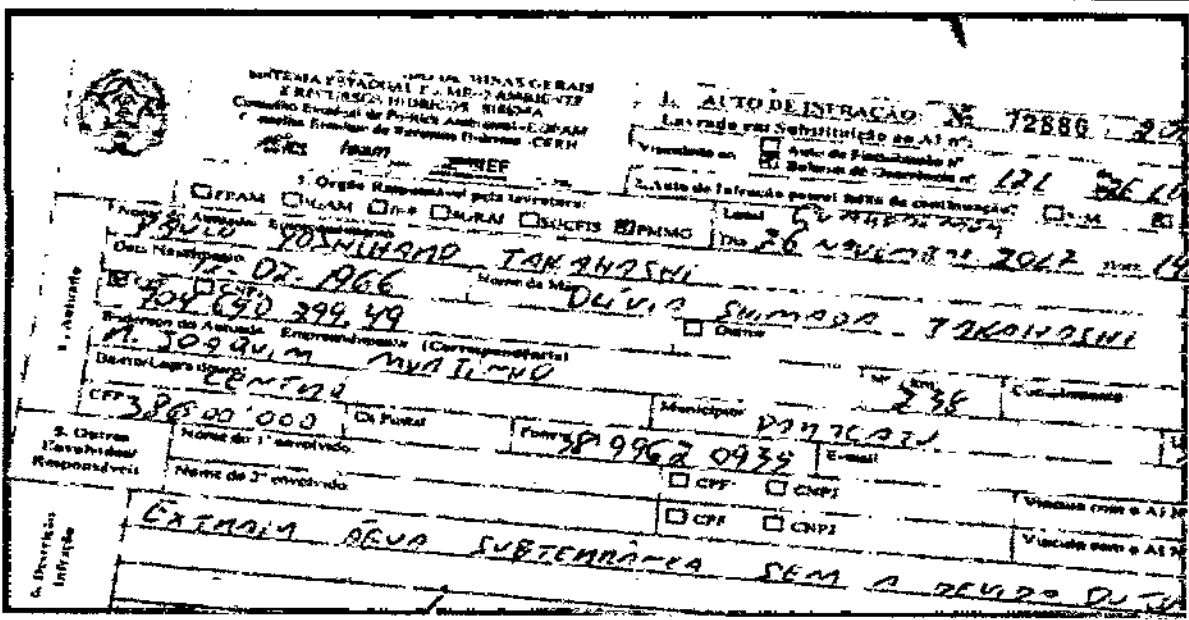 SISTEMA ESTADUAL DE MEIO AMBIENTE
E RECURSOS HIDRICOS - SISEMA
Conselho Estadual de Política Ambiental - COPAM
Conselho Estadual de Recursos Hídricos - CERH
feam IEF
1. AUTO DE INFRAÇÃO: Nº 72886
Lavrado em Substituição ao AI nº:
Vinculado ao: Auto de Fiscalização nº
Boletim de Ocorrência nº
2. Auto de Infração possui folha de continuação?
3. Órgão Responsável pela lavratura:
FEAM IGAM IEF SGRAI SUCFIS PMMG
Local
Dia 26 NOVEMBRO 2012
4. Autuado
PAULO YOSHIHARO TAKAHASHI
Data Nascimento 07-1966
Nome da Mãe
OLÍVIA SHIMADA TAKAHASHI
CPF CNPJ
704 690 299.49
Outros
Endereço do Autuado Empreendimento (Correspondência)
R. JOAQUIM MURTINHO
Nº / km 238
Complemento
Bairro/Logradouro
CENTRO
Município
PARACATU
CEP 38600'000
Cx Postal
Fone 38 9962 0935
E-mail
5. Outros Envolvidos/ Responsáveis
Nome do 1º envolvido
CPF CNPJ
Vínculo com o AI Nº
Nome do 2º envolvido
CPF CNPJ
Vínculo com o AI Nº
6. Descrição Infração
EXTRAIR ÁGUA SUBTERRÂNEA SEM A DEVIDA